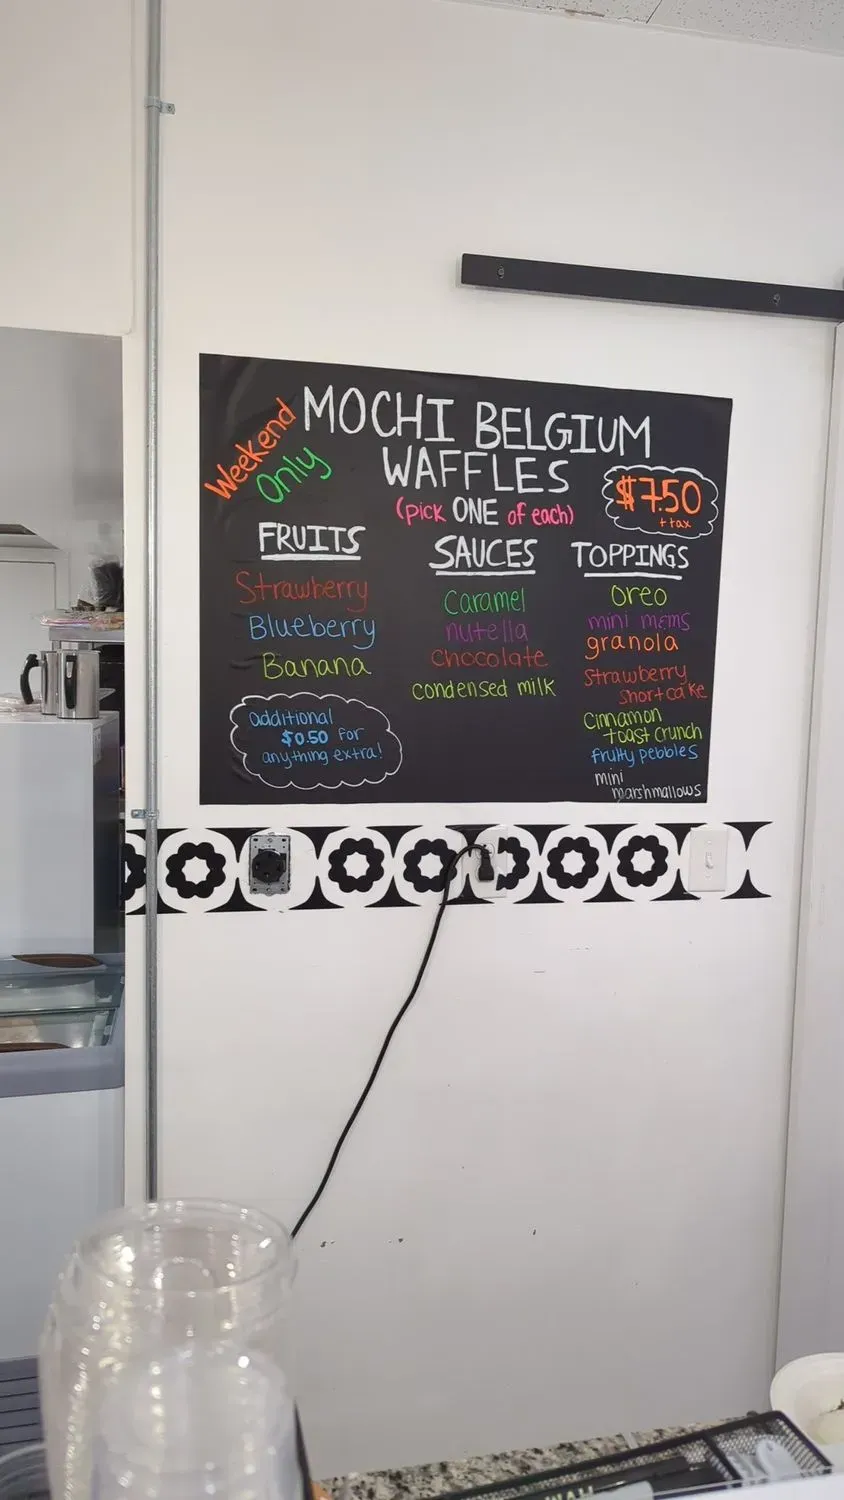 Weekend
Only
MOCHI BELGIUM
WAFFLES
(pick ONE of each)
$7.50
+ tax
FRUITS
Strawberry
Blueberry
Banana
additional
$0.50 for
anything extra!
SAUCES
Caramel
nutella
chocolate
condensed milk
TOPPINGS
oreo
mini m&ms
granola
Strawberry
shortcake
Cinnamon
toast crunch
fruity pebbles
mini
marshmallows